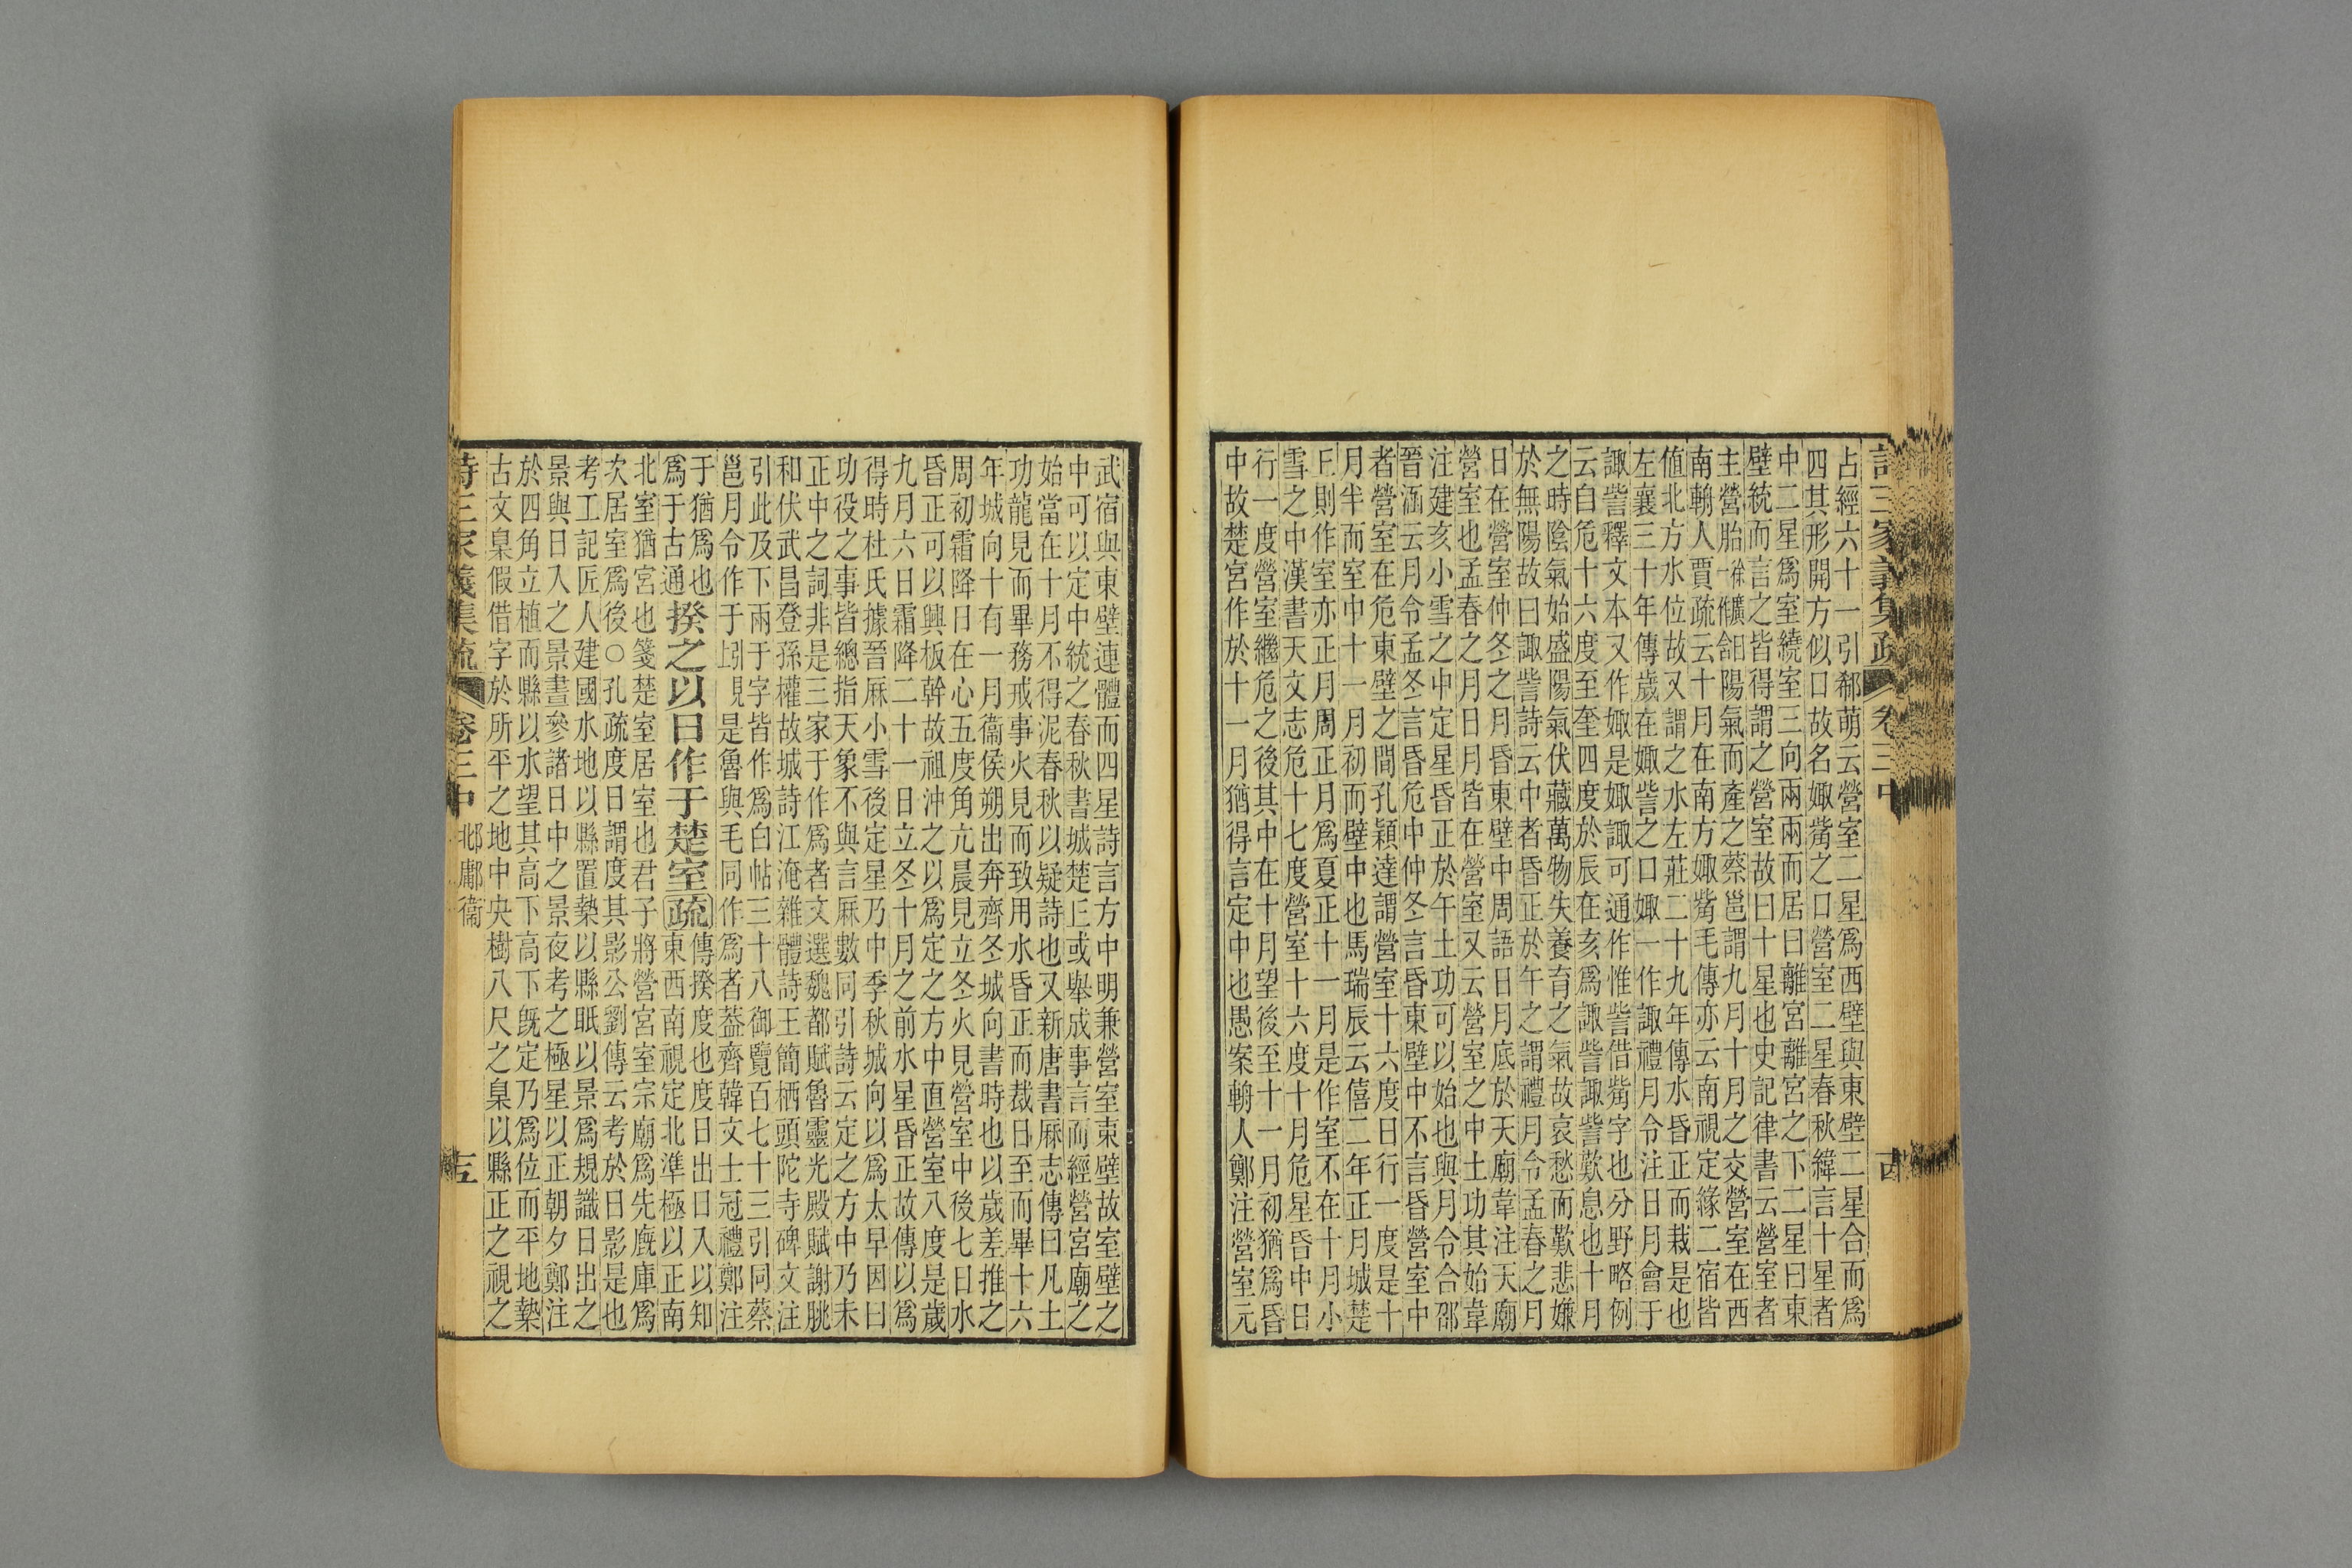 詩三家義集疏 卷三中
占經六十一引郗萌云營室二星爲西壁與東壁二星合而爲
四其形開方似口故名娵觜之口營室二星春秋緯言十星者
中二星爲室繞室三向兩兩而居曰離宮離宮之下二星曰東
壁統而言之皆得謂之營室故曰十星也史記律書云營室者
主營胎陽氣而產之蔡邕謂九月十月之交營室在西
南輈人賈疏云十月在南方娵觜毛傳亦云南視定緣二宿皆
値北方水位故又謂之水左莊二十九年傳水昏正而栽是也
左襄三十年傳歲在娵訾之口娵一作諏禮月令注日月會于
諏訾釋文本又作娵是娵諏可通作惟訾借觜字也分野略例
云自危十六度至奎四度於辰在亥爲諏訾諏訾歎息也十月
之時陰氣始盛陽氣伏藏萬物失養育之氣故哀愁而歎悲嫌
於無陽故曰諏訾詩云中者昏正於午之謂禮月令孟春之月
日在營室仲冬之月昏東壁中周語日月底於天廟韋注天廟
營室也孟春之月日月皆在營室又云營室之中土功其始韋
注建亥小雪之中定星昏正於午土功可以始也與月令合邵
晉涵云月令孟冬言昏危中仲冬言昏東壁中不言昏營室中
者營室在危東壁之間孔穎達謂營室十六度日行一度是十
月半而室中十一月初而壁中也馬瑞辰云僖二年正月城楚
丘則作室亦正月周正月爲夏正十一月是作室不在十月小
雪之中漢書天文志危十七度營室十六度十月危星昏中日
行一度營室繼危之後其中在十月望後至十一月初猶爲昏
中故楚宮作於十一月猶得言定中也愚案輈人鄭注營室元
武宿與東壁連體而四星詩言方中明兼營室東壁故室壁之
中可以定中統之春秋書城楚丘或舉成事言而經營宮廟之
始當在十月不得泥春秋以疑詩也又新唐書厤志傳曰凡土
功龍見而畢務戒事火見而致用水昏正而裁日至而畢十六
年城向十有一月衞侯朔出奔齊冬城向書時也以歲差推之
周初霜降日在心五度角亢晨見立冬火見營室中後七日水
昏正可以興板幹故祖沖之以爲定之方中直營室八度是歲
九月六日霜降二十一日立冬十月之前水星昏正故傳以爲
得時杜氏據晉厤小雪後定星乃中季秋城向以爲太早因曰
功役之事皆總指天象不與言厤數同引詩云定之方中乃未
正中之詞非是三家于作爲者文選魏都賦魯靈光殿賦謝朓
和伏武昌登孫權故城詩江淹雜體詩王簡栖頭陀寺碑文注
引此及下兩于字皆作爲白帖三十八御覽百七十三引同蔡
邕月令作于是魯與毛同作爲者葢齊韓文士冠禮鄭注
于猶爲也
爲于古通
揆之以日作于楚室疏
傳揆度也度日出日入以知
東西南視定北準極以正南
北室猶宮也箋楚室居室也君子將營宮室宗廟爲先廐庫爲
次居室爲後○孔疏度日謂度其影公劉傳云考於日影是也
考工記匠人建國水地以縣置槷以縣眂以景爲規識日出之
景與日入之景晝參諸日中之景夜考之極星以正朝夕鄭注
於四角立植而縣以水望其高下高下旣定乃爲位而平地槷
古文臬假借字於所平之地中央樹八尺之臬以縣正之視之
卷三中 邶鄘衞